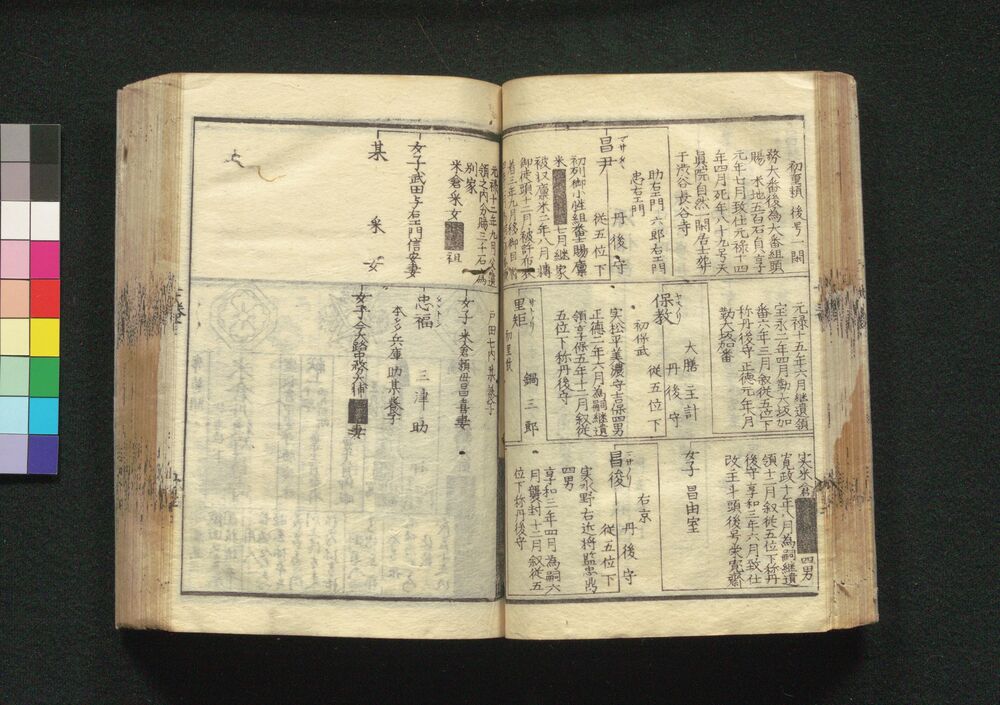 初重頼 後号一閑
務大番後為大番組頭
賜 采地五百石貞享
元年七月致仕元禄十四
年四月死年八十九号天
真院自然一閑居士葬
于渋谷長谷寺
助右エ門 六郎右エ門
忠右エ門
丹後守
昌尹
マサタダ
従五位下
初列御小姓組番士賜廩
米
七月継家
被収廩米二年八月轉
御徒頭十二月被許布衣
元禄十五年六月継遺領
宝永二年四月勤大坂加
番六年三月叙従五位下
称丹後守 正徳元年八月
勤大坂加番
大膳 主計
丹後守
保教
初保武 従五位下
実松平美濃守吉保四男
正徳二年六月為嗣継遺
領享保五年十二月叙従
五位下称丹後守
里矩
鍋三郎
初里技
実米倉
四男
寛政十年八月為嗣継遺
領十二月叙従五位下称丹
後守享和三年六月致仕
改主斗頭後号米寛斎
女子 昌由室
右京
丹後守
昌俊
従五位下
実水野右近将監忠鼎
四男
享和三年四月為嗣六
月襲封十二月叙従五
位下称丹後守
元禄十二年九月
領之内分賜三千石為
別家
米倉采女
祖
女子 武田与右エ門信安妻
某
采女
戸田七内
養子
女子 米倉頼母昌喜妻
忠福
三津助
兵庫助某養子
女子 今大路中務大輔
妻